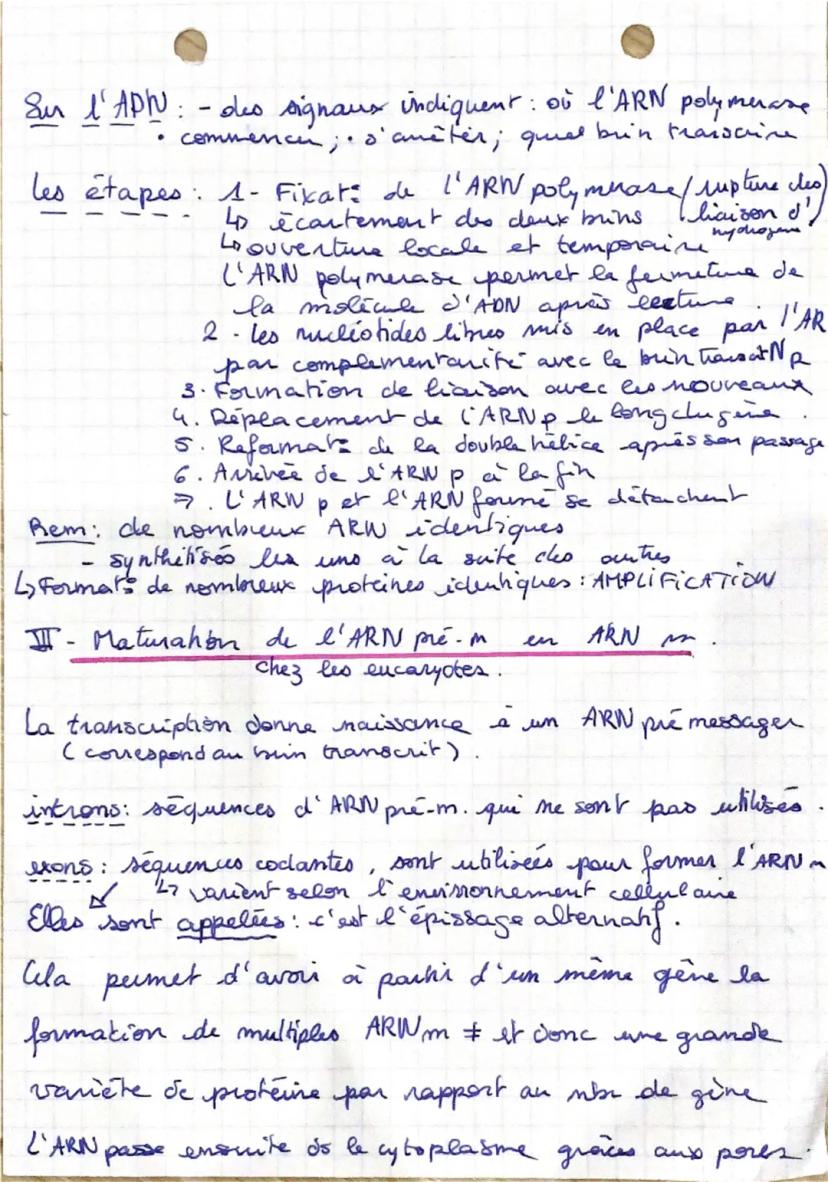 Sur l'ADN : - des signaux indiquent : où l'ARN polymerase
• commencer ; • s'arrêter ; quel brin transcrire
les étapes : 1 - Fixat° de l'ARN polymerase / rupture des
↳ écartement des deux brins liaison d'
hydrogene
↳ ouverture locale et temporaire
L'ARN polymerase permet la fermeture de
la molécule d'ADN après lecture.
2 - les nucléotides libres mis en place par l'AR
par complementarité avec le brin transcrit N p
3. Formation de liaison avec les nouveaux
4. Déplacement de l'ARN p le long du gène.
5. Reformat° de la double hélice après son passage
6. Arrivée de l'ARN p à la fin
⇒ L'ARN p et l'ARN formé se détachent
Rem : de nombreux ARN identiques
- synthétisés les uns à la suite des autres
↳ Format° de nombreux protéines identiques : AMPLIFICATION
III - Maturation de l'ARN pré-m en ARN m.
chez les eucaryotes.
La transcription donne naissance à un ARN pré messager
( correspond au brin transcrit ).
introns : séquences d'ARN pré-m. qui ne sont pas utilisés.
exons : séquences codantes, sont utilisées pour former l'ARN m
↳ varient selon l'environnement cellulaire
Elles sont appelées : c'est l'épissage alternatif.
Cela permet d'avoir à partir d'un même gène la
formation de multiples ARN m ≠ et donc une grande
variété de protéine par rapport au nbr de gène
L'ARN passe ensuite ds le cytoplasme grâces aux pores.